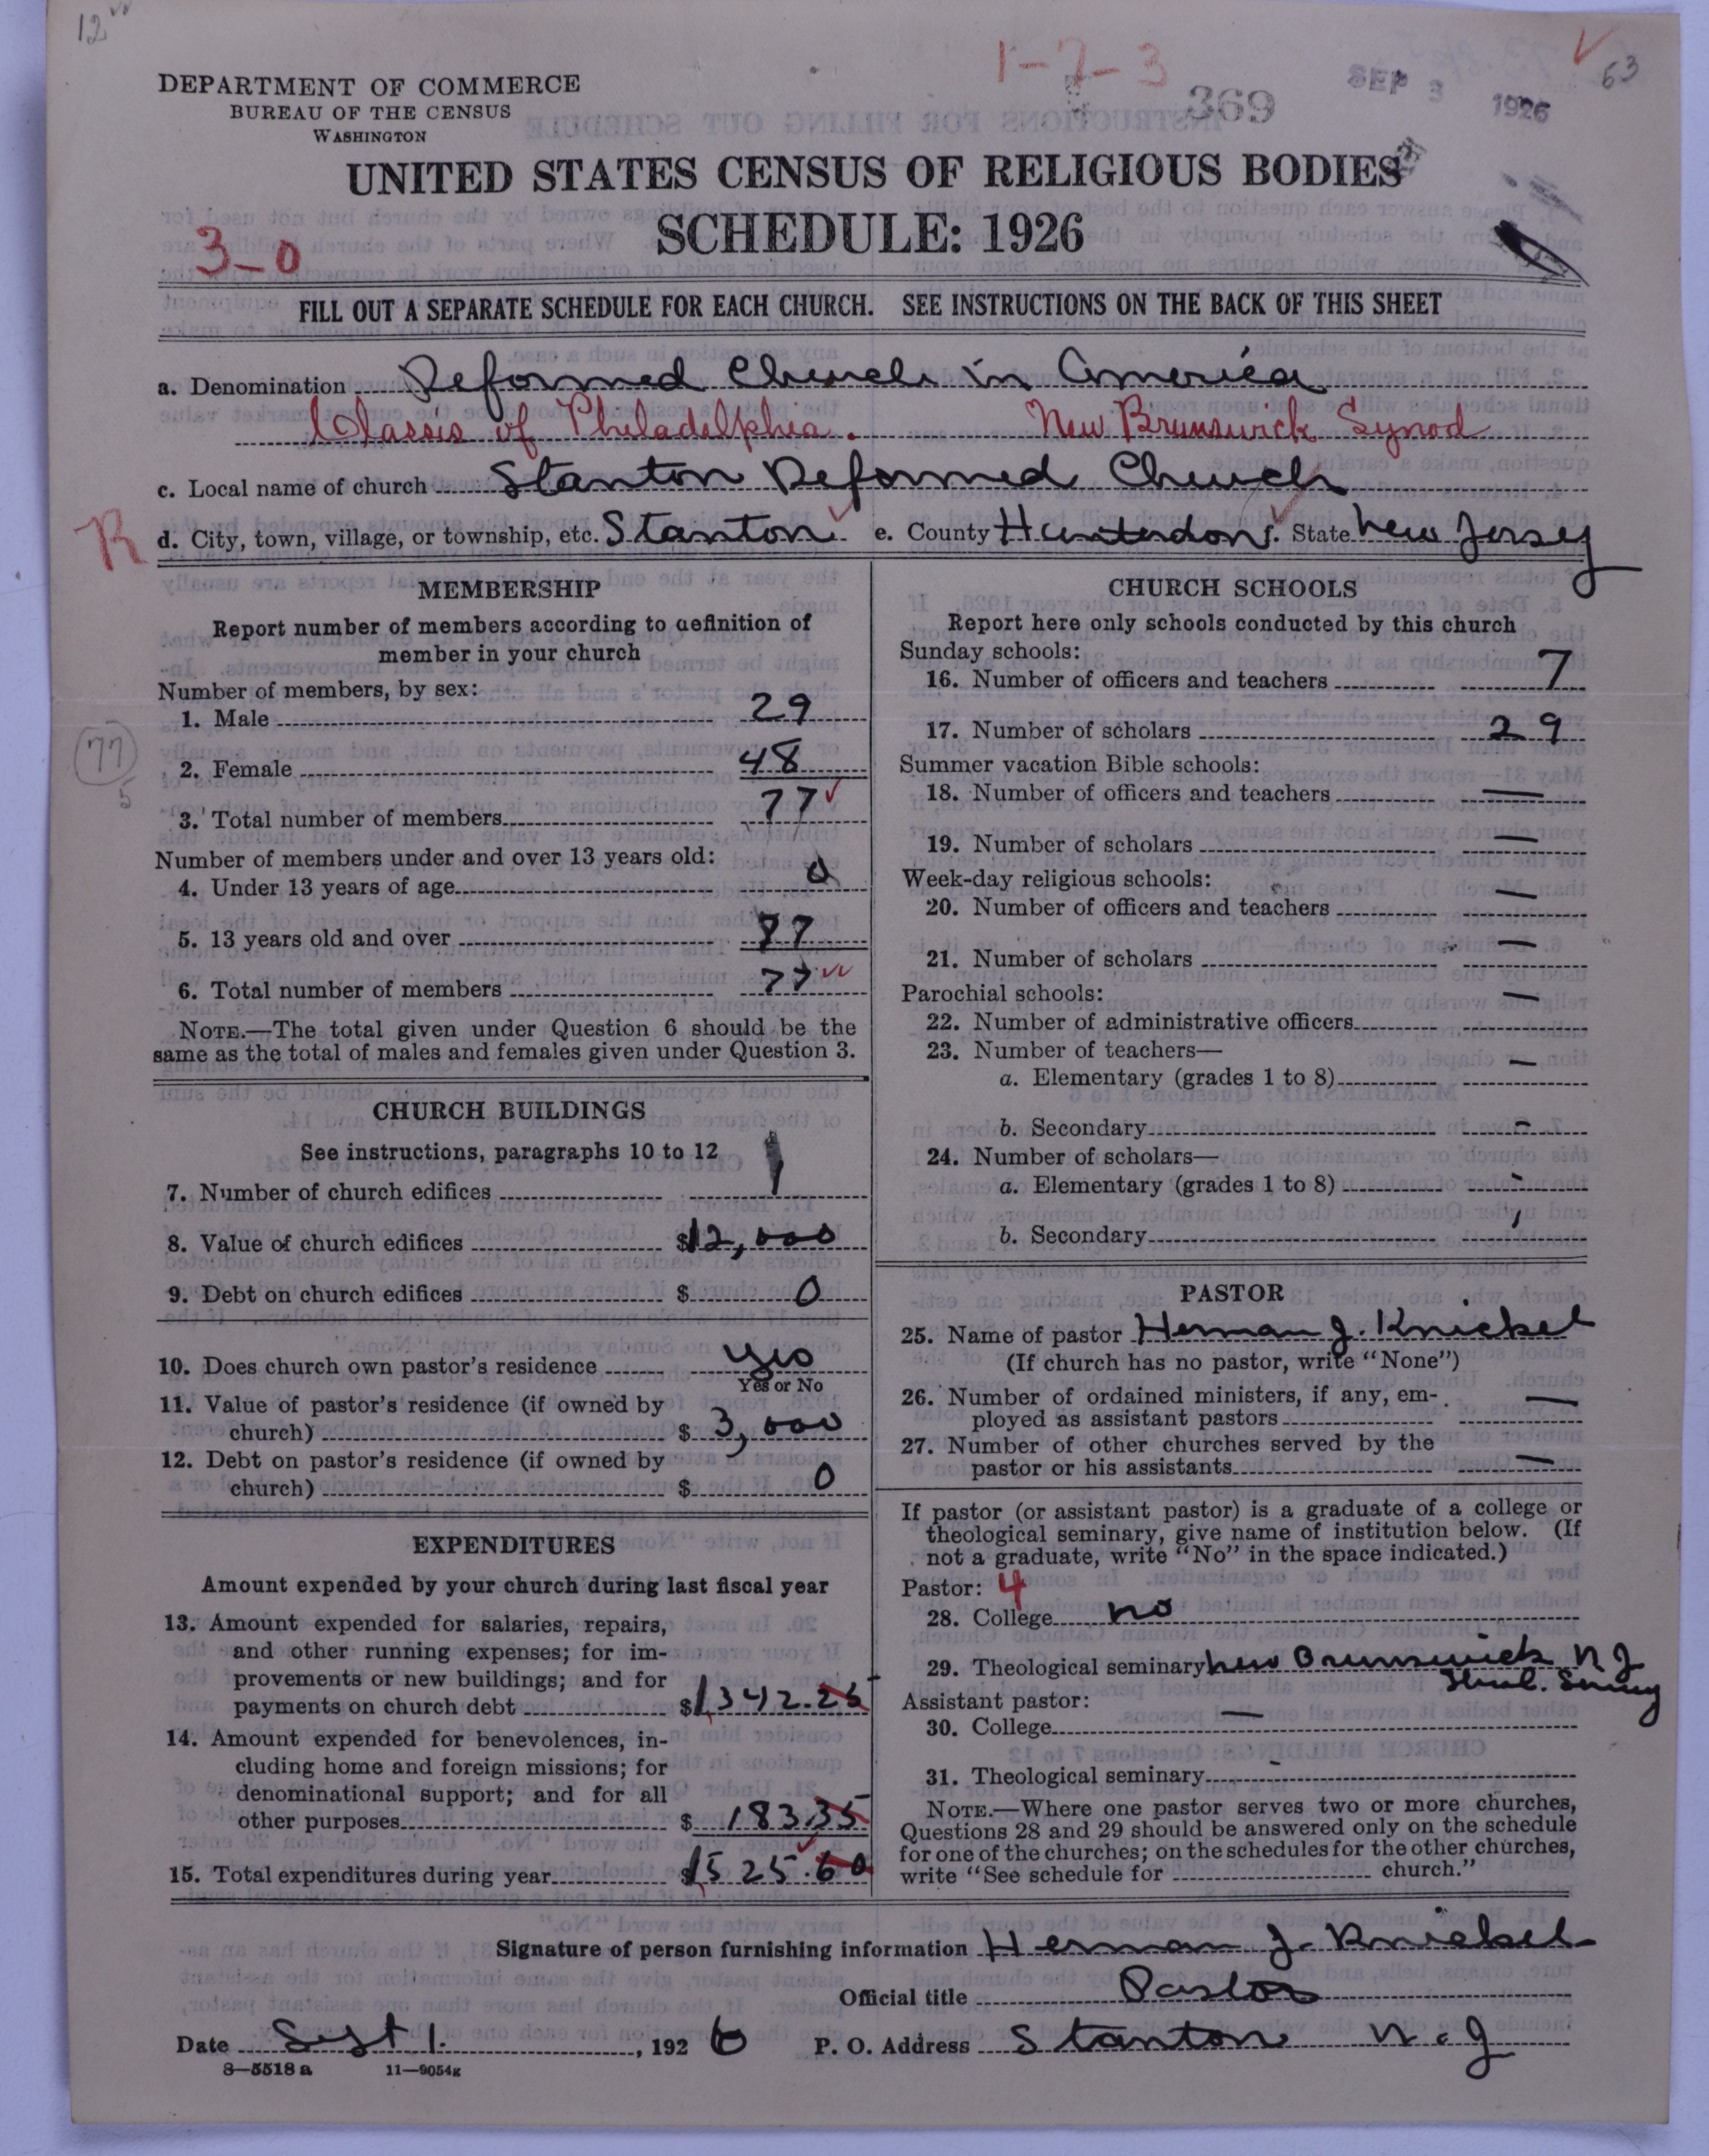 12
1-7-3
369
SEP 3 1926
63
DEPARTMENT OF COMMERCE
BUREAU OF THE CENSUS
WASHINGTON
UNITED STATES CENSUS OF RELIGIOUS BODIES
SCHEDULE: 1926
3-0
FILL OUT A SEPARATE SCHEDULE FOR EACH CHURCH. SEE INSTRUCTIONS ON THE BACK OF THIS SHEET
a. Denomination Reformed Church in America
Classis of Philadelphia. New Brunswick Synod
c. Local name of church Stanton Reformed Church
R
d. City, town, village, or township, etc. Stanton e. County Hunterdon f. State New Jersey
MEMBERSHIP
Report number of members according to definition of
member in your church
Number of members, by sex:
1. Male 29
77
2. Female 48
5
3. Total number of members 77
Number of members under and over 13 years old:
4. Under 13 years of age 0
5. 13 years old and over 77
6. Total number of members 77
NOTE.—The total given under Question 6 should be the
same as the total of males and females given under Question 3.
CHURCH BUILDINGS
See instructions, paragraphs 10 to 12
7. Number of church edifices 1
8. Value of church edifices $12,000
9. Debt on church edifices $ 0
10. Does church own pastor's residence yes
Yes or No
11. Value of pastor's residence (if owned by
church) $ 3,000
12. Debt on pastor's residence (if owned by
church) $ 0
EXPENDITURES
Amount expended by your church during last fiscal year
13. Amount expended for salaries, repairs,
and other running expenses; for im-
provements or new buildings; and for
payments on church debt $1,342.25
14. Amount expended for benevolences, in-
cluding home and foreign missions; for
denominational support; and for all
other purposes $ 183.35
15. Total expenditures during year $1525.60
CHURCH SCHOOLS
Report here only schools conducted by this church
Sunday schools:
16. Number of officers and teachers 7
17. Number of scholars 29
Summer vacation Bible schools:
18. Number of officers and teachers —
19. Number of scholars —
Week-day religious schools:
20. Number of officers and teachers —
21. Number of scholars —
Parochial schools:
22. Number of administrative officers —
23. Number of teachers—
a. Elementary (grades 1 to 8) —
b. Secondary -
24. Number of scholars—
a. Elementary (grades 1 to 8) -
b. Secondary
PASTOR
25. Name of pastor Herman J. Knickel
(If church has no pastor, write "None")
26. Number of ordained ministers, if any, em-
ployed as assistant pastors —
27. Number of other churches served by the
pastor or his assistants —
If pastor (or assistant pastor) is a graduate of a college or
theological seminary, give name of institution below. (If
not a graduate, write "No" in the space indicated.)
Pastor: 4
28. College no
29. Theological seminary New Brunswick N J
Assistant pastor:
30. College —
31. Theological seminary -
NOTE.—Where one pastor serves two or more churches,
Questions 28 and 29 should be answered only on the schedule
for one of the churches; on the schedules for the other churches,
write "See schedule for church."
Signature of person furnishing information Herman J. Knickel
Official title Pastor
Date Sept 1. , 1926 P. O. Address Stanton N. J
8—5518 a 11—9054g